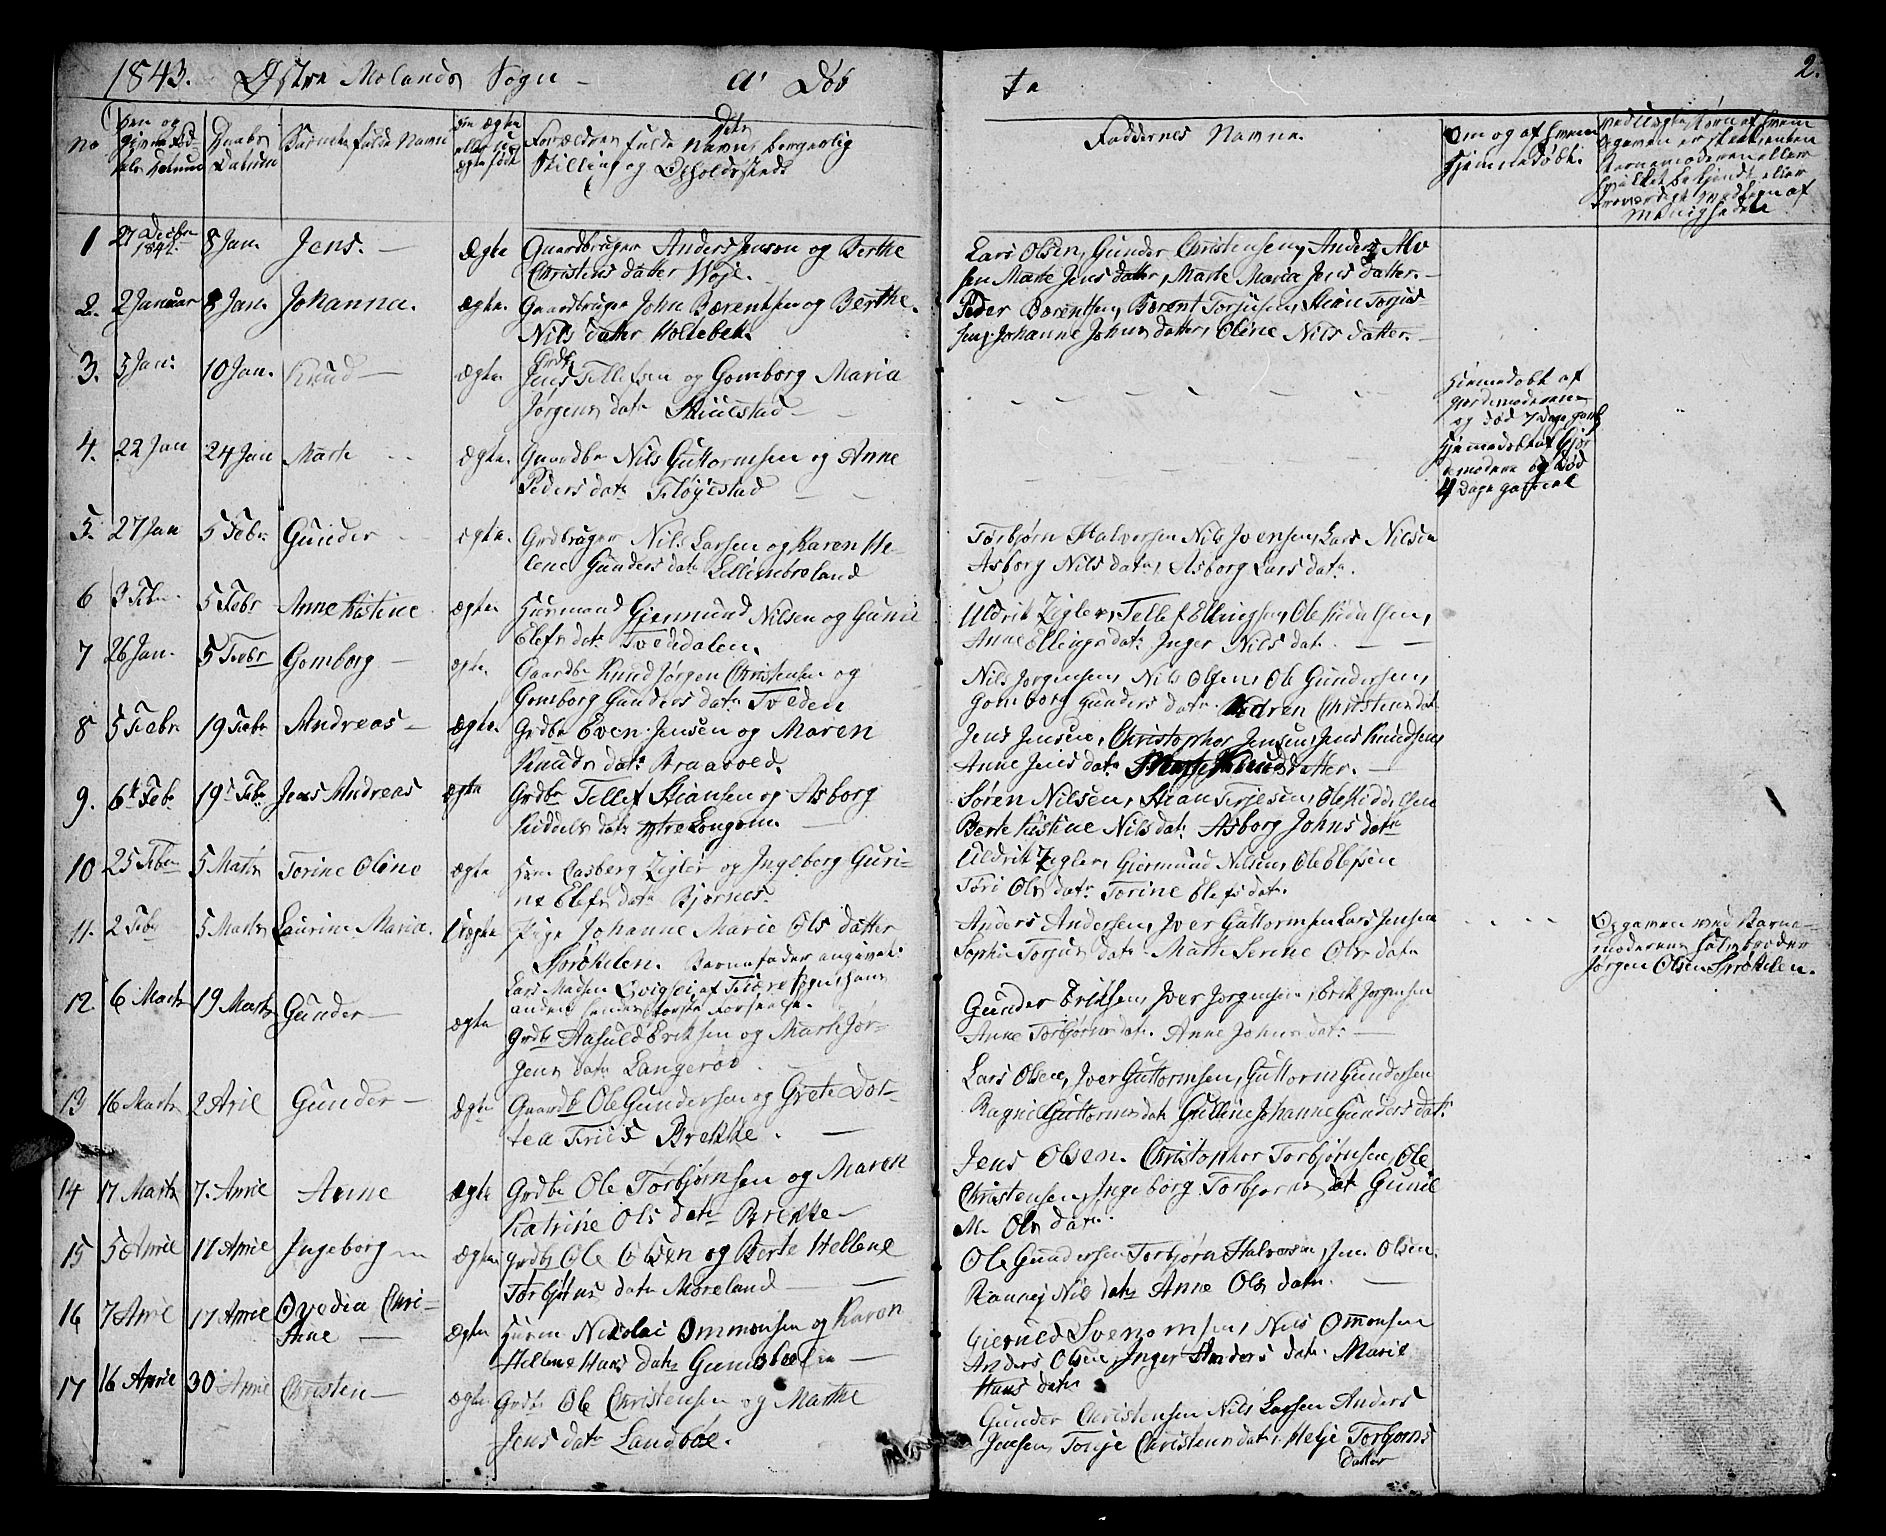 1843. Østre Molands Sogn – a' Døb
te 2.
No
Barnets fulde Navn
Forældres fulde Navn, borgerlig
Stilling og Opholdssteds
Faddernes Navne.
Om og af hvem
hjemmedøbt.
Menighedele
1 27 Decbr 1842 8 Jan. Jens. – Ægte Gaardbruger Anders Jenson og Berthe
Christens datter Woje.
Lars Olsen, Gunder Christensen, Anders Alv
sen Marte Jens datter, Marte Maria Jens datter. –
2. 2 Januar 8 Jan. Johanna. ægte. Gaardbruger John Bærentsen og Berthe
Nils datter Holtebek.
Peder Bærentsen, Bærent Torjusen, Stian Torjus-
sen, Johanne Johns datter, Oline Nils datter. –
3. 5 Jan: 10 Jan. Knud – ægte Grdb
Jens Tellefsen og Gomborg Maria
Jørgens dat. Stuestad –
Hjemmedøbt af
gjordemoderen
og død 7 Dage gaml
4. 22 Jan 24 Jan Marte ægte. Gaardbr Nils Guttormsen og Anne
Peders dat. Fløjestad –
Hjemmedøbt af Gjor
demoderen og Død
4 Dage gammel
5. 27 Jan 5 Febr. Gunder ægte. Grdbruger Nils Larsen og Karen He-
lene Gunders dat. Lillimoreland
Torbjørn Halversen Nils Jvensen, Lars Nilsen
Asborg Nils dat., Asborg Lars dat.
6 3 Febr. 5 Febr Anne Kistine ægte Huusmand Gjermund Nilsen og Guni
Elefs dat. Tvededalen.
Uldrik Zigler, Tellef Ellingsen, Ole Kidulsen,
Anne Ellings dat. Inger Nils dat. –
7 26 Jan. 5 Febr Gomborg – ægte. Gaardbr Knud Jørgen Christensen og
Gomborg Gunders dat. Tveden
Nils Jorgensen, Nils Olsen, Ole Gundersen,
Gomborg Gunders dat. Karen Christens dat
8 5 Febr 19 Febr Andreas – ægte. Grdbr Even Jensen og Maren
Knuds dat. Braavold.
Jens Jensen, Christopher Jensen, Jens Knudsen,
Anne Jens dat. Marte Knudsdatter. –
9. 6t Feb. 19 Feb. Jens Andreas ægte Grdbr Tellef Stiansen og Asborg
Kiddels dat. ytre Longom. –
Søren Nilsen, Stian Terjesen, Ole Kiddelsen
Berte Kistine Nils dat. Asborg Johns dat
10 25 Febr 5 Marts Torine Oline ægte Huus Casberg Zigler og Ingeborg Guri-
ne Elefs dat. Bjørnes.
Uldrik Zigler, Gjermund Nilsen, Ole Elefsen
Tori Ols dat. Torine Elefs dat.
11. 2 Feb 5 Marts Laurine Maria. Uægte Pige Johanne Marie Ols datter
Sprøkelen. Barnefader angivet:
Lars Madsen
anden hendes første forseelse.
Anders Andersen, Jver Guttormsen Lars Jensen
Sophie Torjus dat. Marte Serine Ols dat
Opgaven ved Barne-
moderens halvbroder
Jørgen Olsen Sprøkelen.
12. 6 Marts 19 Marts Gunder – ægte Grdb Aasuld Eriksen og Marte Jør-
gens dat. Langerød.
Gunder Eriksen, Jver Jørgensen, Erik Jorgensen
Anne Torbjørns dat. Anne Johns dat. –
13 16 Marts 2 Aril Gunder – ægte Gaardb Ole Gundersen og Grete Dor-
tea Friis Brekke. –
Lars Olsen, Jver Guttormsen, Guttorm Gundersen
Ragni Guttorms dat. Gulline Johanne Gunders dat.
14 17 Marts 7. April Anne ægte Grdbr Ole Torbjørnsen og Maren
Katrine Ols dat. Brekke –
Jens Olsen. Christopher Torbjørnsen, Ole
Christensen, Ingeborg Torbjørns dat Gunil
M. Ols dat.
15 5 April 17 April Ingeborg – ægte Grdbr Ole Olsen og Berte Hellene
Torbjørns dat. Moreland –
Ole Gundersen Torbjørn Halvorsen, Jens Olsen.
Rannej Nils dat. Anne Ols dat. –
16 7 April 17 April Ovedia Chri-
stine – ægte Huusm Nikolai Ommonsen og Karen
Hellene Hans dat. –
Gierulf Svenomsen, Nils Ommonsen
Anders Olsen, Inger Anders dat. Marie
Hans dat.
17 16 April 30 April Christen – ægte Grdbr Ole Christensen og Marthe
Jens dat. Landbøe.
Gunder Christensen Nils Larsen Anders
Jensen, Tonje Christens dat. Helje Torbjørns
datter